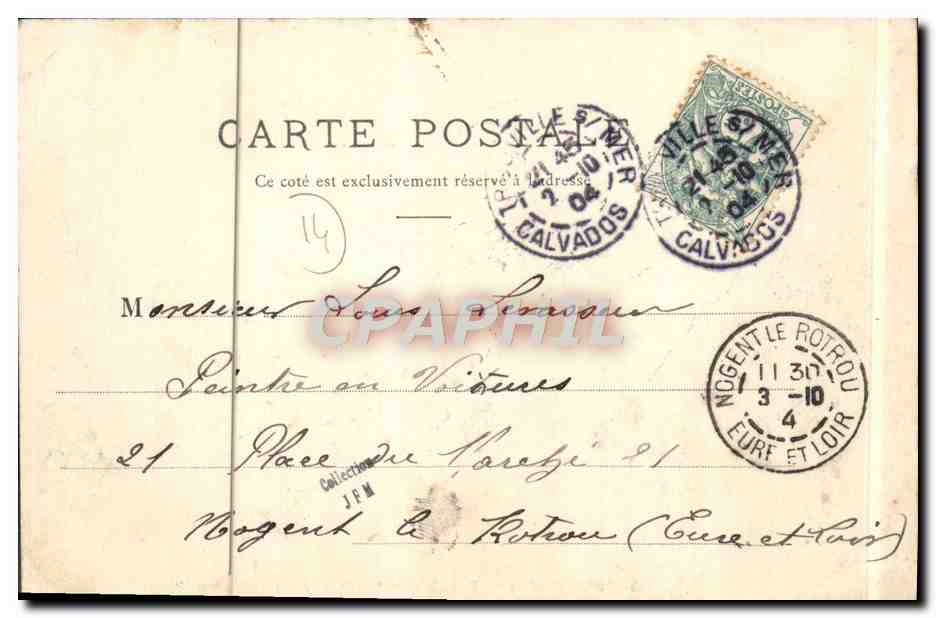 CARTE POSTALE
Ce coté est exclusivement réservé à l'adresse
VILLE S/ MER
21 45
2 -10
04
CALVADOS
POSTES
VILLE S/ MER
21 45
2 -10
04
CALVADOS
14
Monsieur Louis Levasseur
CPAPHIL
Peintre en Voitures
NOGENT LE ROTROU
11 30
3 -10
4
EURE ET LOIR
21 Place du Marché 21
Collection
JFM
Nogent le Rotrou (Eure et Loir)